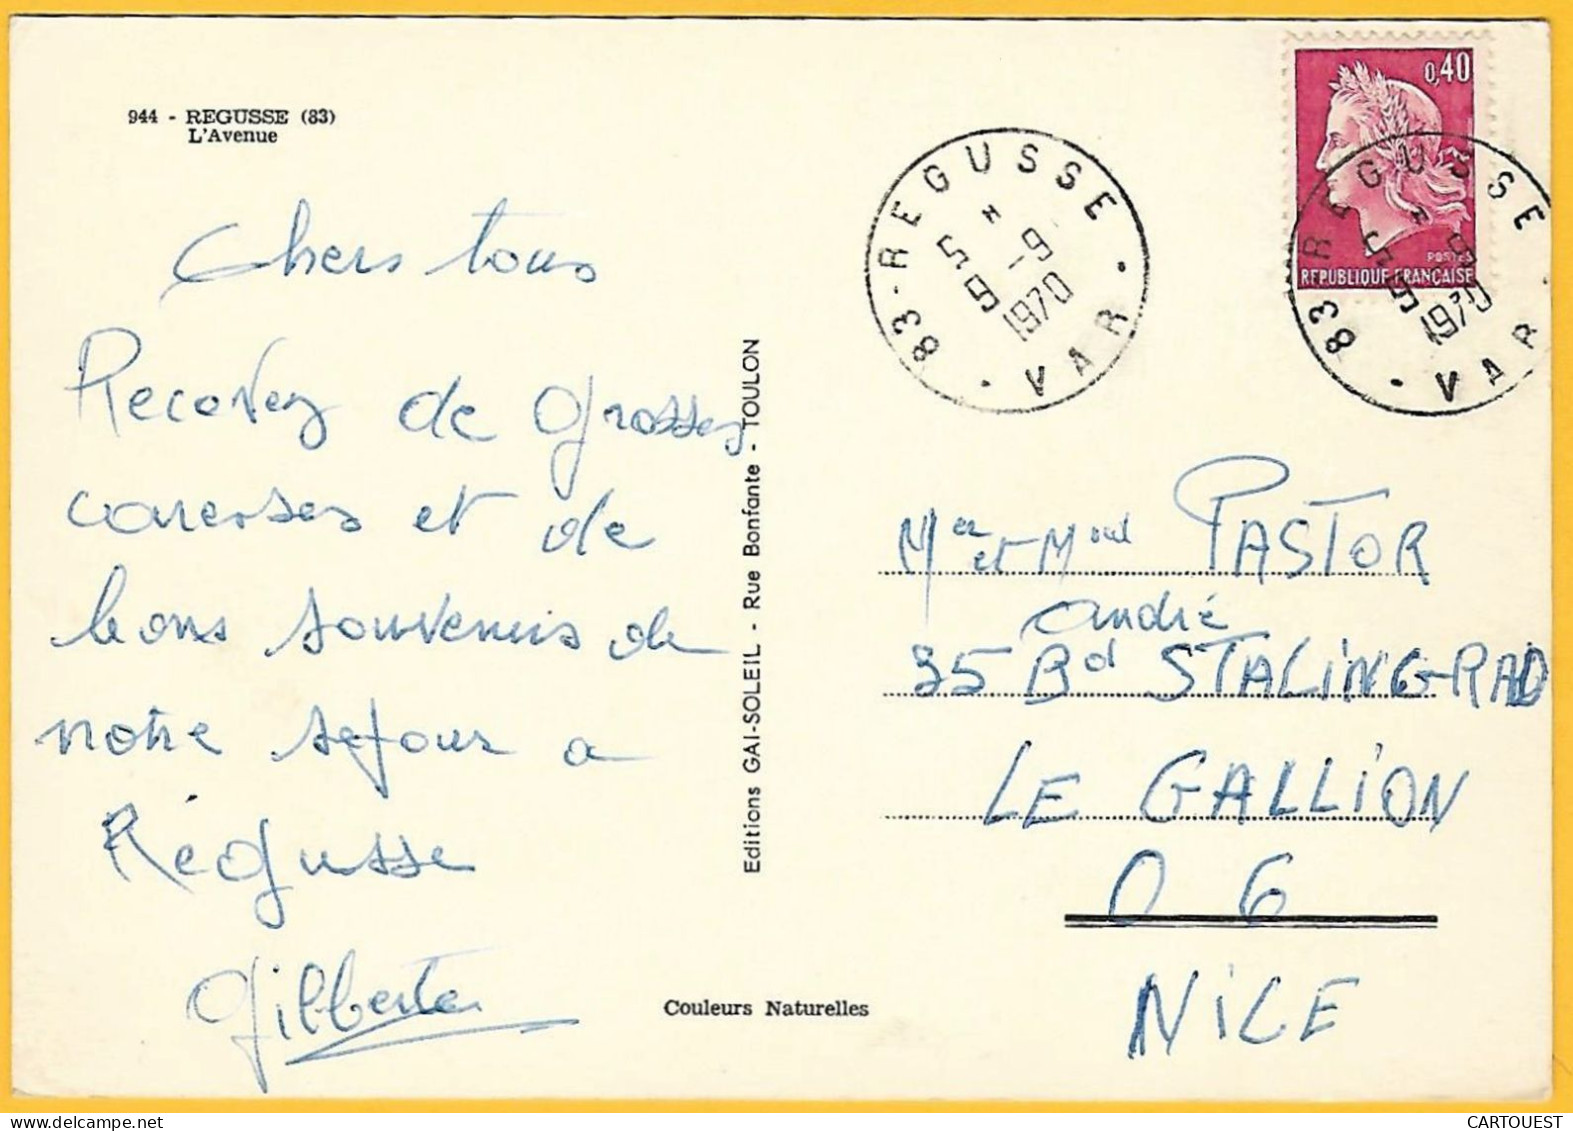 944 - REGUSSE (83)
L'Avenue
Chers tous
Recevez de grosses
caresses et de
bons souvenirs de
notre séjour a
Régusse
Gilberte
Editions GAI-SOLEIL - Rue Bonfante - TOULON
Couleurs Naturelles
83 - REGUSSE
5 - 9
1970
VAR
0,40
POSTES
REPUBLIQUE FRANÇAISE
83 - REGUSSE
5 - 9
1970
VAR
et PASTOR
andré
35 Bd STALINGRAD
LE GALLION
06
NICE
CARTOUEST